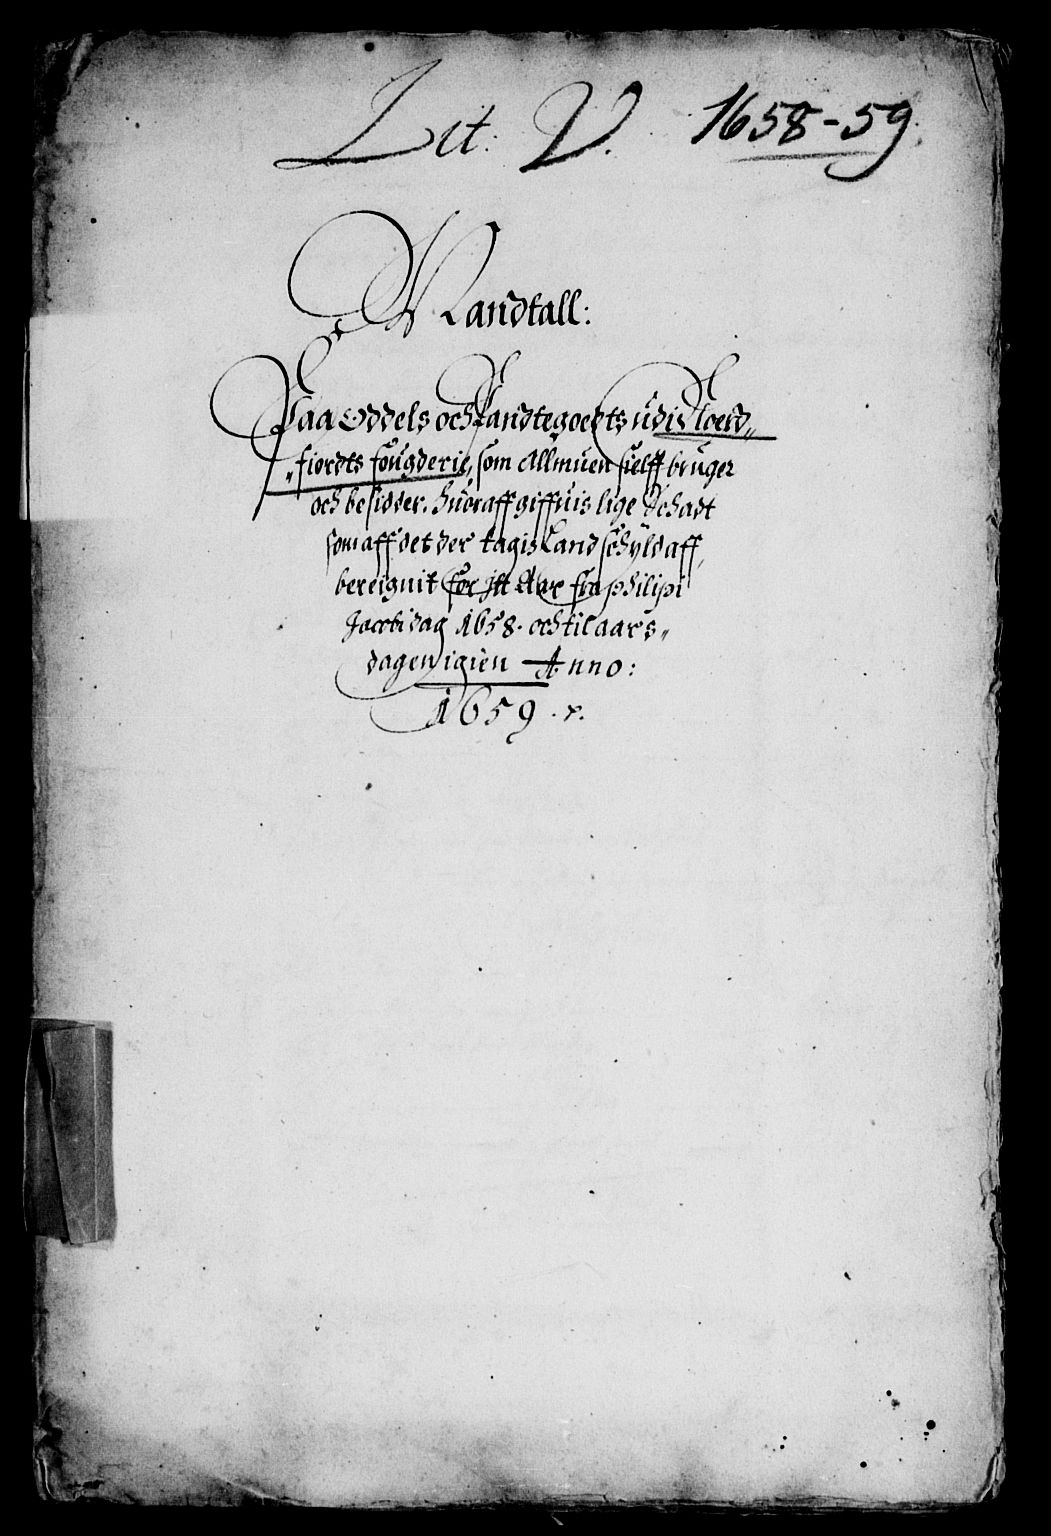 Lit: V. 1658-59.
Mandtall:
Paa Oddels och Pandtegoedts udi Noerd„
„fiordts fougderie, som Allmuen sielff bruger
och besidder, huoraff giffuis lige Schadt
som aff det der tagis Landschyld aff,
bereignit for Jtt Aar fra philipi
Jacobi dag 1658. och til aars„
dagen igien Anno:
1659.